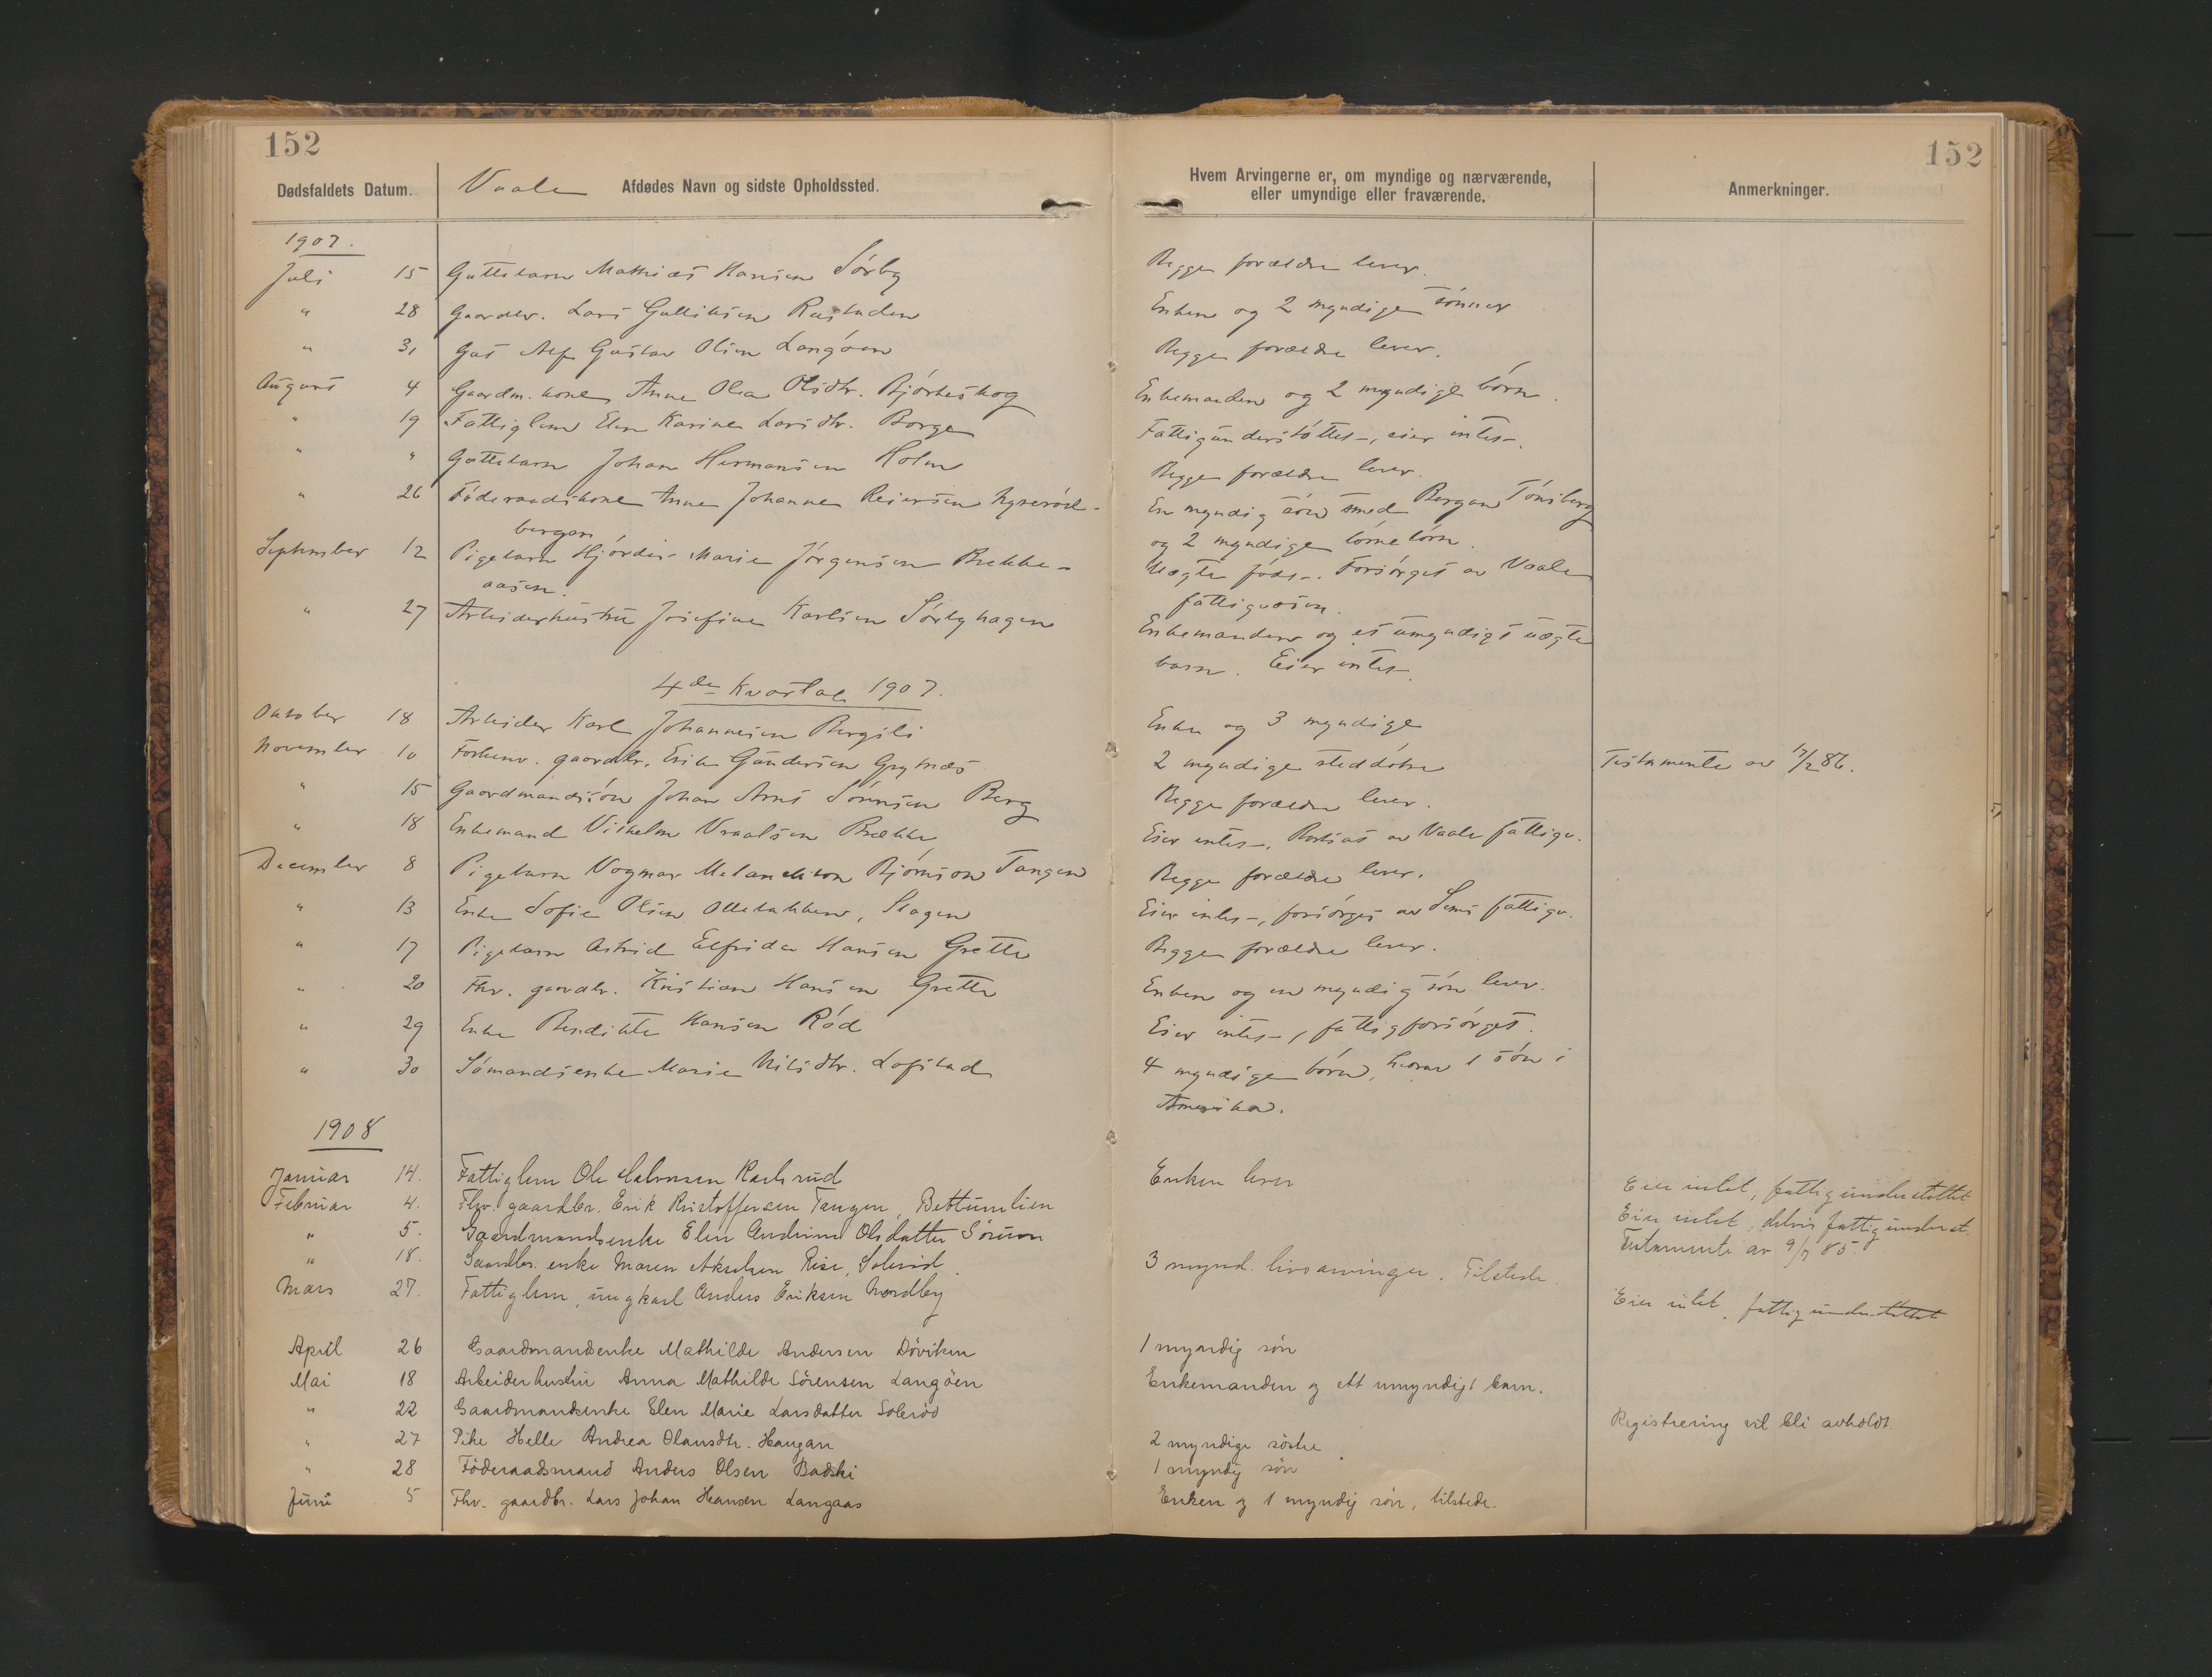 152
152
Dødsfaldets Datum.
Vaale Afdødes Navn og sidste Opholdssted.
Hvem Arvingerne er, om myndige og nærværende,
eller umyndige eller fraværende.
Anmerkninger.
1907.
Juli 15 Guttebarn Mathias Hansen Sørby Begge forældre lever.
" 28 Gaardbr. Lars Gulliksen Rustaden Enken og 2 myndige sønner
" 31 Gut Alf Gustav Olsen Langøen Begge forældre lever.
August 4 Gaardm. kone Anne Olea Olsdtr. Bjørkeskog Enkemanden og 2 myndige børn.
" 19 Fattiglem Elen Karine Larsdtr. Borge Fattigunderstøttet, eier intet.
" " Guttebarn Johan Hermansen Holm Begge forældre lever.
" 26 Føderaadskone Anne Johanne Reiersen Nyrerød-
bergan
En myndig søn smed Bergan Tønsberg
og 2 myndige børnebørn.
September 12 Pigebarn Hjørdis Marie Jørgensen Brekke-
aasen.
Uægte født. Forsørget av Vaale
fattigvæsen.
" 27 Arbeiderhustru Josefine Karlsen Sørbyhagen Enkemanden og et umyndigt uægte
barn. Eier intet.
4de Kvartal 1907.
Oktober 18 Arbeider Karl Johannesen Bergsli Enke og 3 myndige
November 10 Forhenv. gaardbr. Erik Gundersen Grytnæs 2 myndige steddøtre Testamente av 17/2 86.
" 15 Gaardmandssøn Johan Arnt Sørensen Berg Begge forældre lever.
" 18 Enkemand Vilhelm Vraalsen Brække Eier intet. Bortsat av Vaale fattigv.
December 8 Pigebarn Dagmar Melankton Bjørnson Tangen Begge forældre lever.
" 13 Enke Sofie Olsen Ollebakken, Slagen Eier intet, forsørges av Sems fattigv.
" 17 Pigebarn Astrid Elfrida Hansen Grette Begge forældre lever.
" 20 Fhv. gaardbr. Kristian Hansen Grette Enken og en myndig søn lever.
" 29 Enke Bendikte Hansen Rød Eier intet, fattigforsørget.
" 30 Sømandsenke Marie Nilsdtr. Lofstad 4 myndige børn, hvorav 1 søn i
Amerika.
1908
Januar 14. Fattiglem Ole Halvorsen Karlsrud Enken lever Eier intet, fattigunderstøttet
Februar 4. Fhv. gaardbr. Erik Kristoffersen Tangen, Bettumlien Eier intet, delvis fattigunderst.
" 5. Gaardmandsenke Elen Andrine Olsdatter Sørum Testamente av 9/7 85.
" 18. Gaardbr. enke Maren Akselsen Rise, Solerød. 3 mynd. livsarvinger. Tilstede.
Mars 27. Fattiglem, ungkarl Anders Eriksen Nordby Eier intet, fattigunderstøttet
April 26 Gaardmandsenke Mathilde Andersen Døviken 1 myndig søn
Mai 18 Arbeiderhustru Anna Mathilde Sørensen Langøen Enkemanden og ett umyndigt barn.
" 22 Gaardmandsenke Elen Marie Larsdatter Solerød Registrering vil bli avholdt.
" 27 Pike Helle Andrea Olausdtr. Haugan 2 myndige søstre.
" 28 Føderaadsmand Anders Olsen Badski 1 myndig søn
Juni 5 Fhv. gaardbr. Lars Johan Hansen Langaas Enken og 1 myndig søn, tilstede.